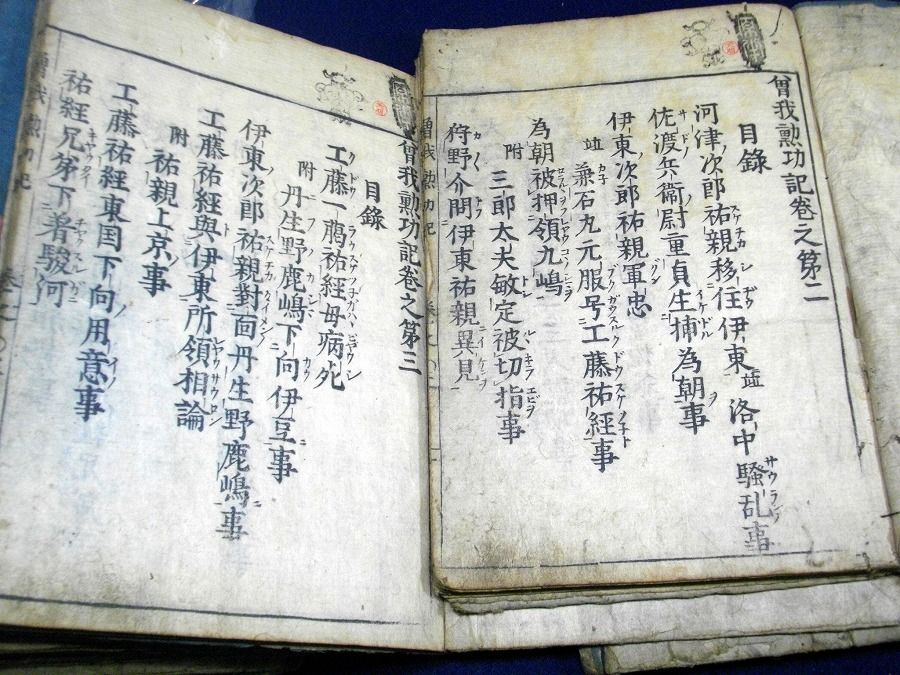 曾我勲功記巻之第二
目録
河津次郎祐親移住伊東並洛中騒乱事
佐渡兵衛尉重貞生捕為朝事
伊東次郎祐親軍忠
並兼石丸元服号工藤祐経事
為朝被押領九嶋
附三郎太夫敏定被切指事
狩野介問伊東祐親異見
曾我勲功記巻之第三
目録
工藤一﨟祐経母病死
附丹生野鹿嶋下向伊豆事
伊東次郎祐親對面丹生野鹿嶋事
工藤祐経與伊東所領相論
附祐親上京事
工藤祐経東国下向用意事
祐経兄弟下着駿河
曾我勲功記